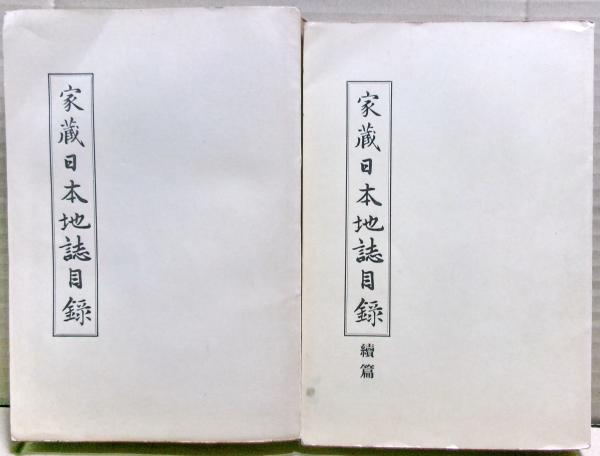 家蔵日本地誌目録
家蔵日本地誌目録
續篇